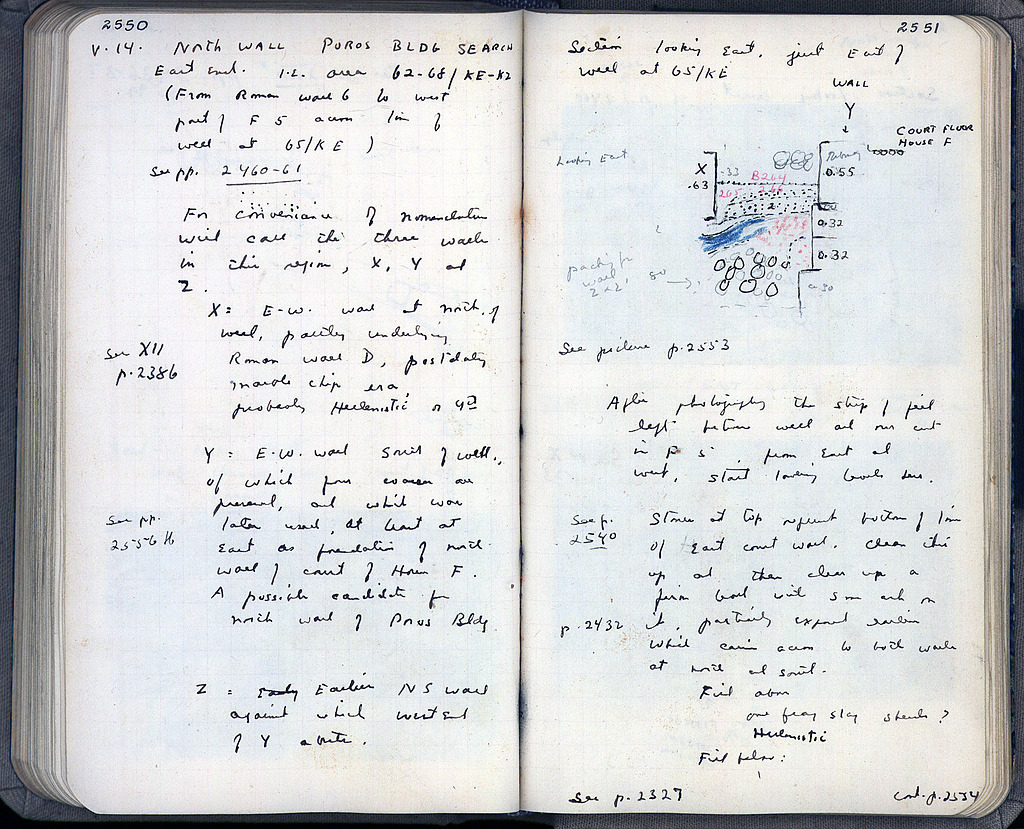 2550
V.14. North WALL POROS BLDG SEARCH
East End. I.e. area 62-68/KE-KZ
(From Roman wall 6 to west
part of F 5 across line of
well at 65/KE)
See pp. 2460-61
For convenience of nomenclature
will call the three walls
in this region, X, Y and
Z.
X = E-W. wall at north of
well, partly underlying
Roman wall D, postdating
marble chip era
probably Hellenistic or 4th
See XII
p. 2386
Y = E-W. wall South of well,
of which four courses are
preserved, and which was
later used, at least at
East as foundation of north
wall of court of House F.
A possible candidate for
north wall of Poros Bldg.
See pp.
2556 ff
Z = Early Earlier NS wall
against which west end
of Y abuts.
2551
Section looking East, just East of
well at 65/KE
WALL
Y
COURT FLOOR
HOUSE F
Looking East
X
.63
.33
B264
265
2
0.55
0.32
0.32
packing for
wall
80
See picture p. 2553
After photographing the strip of fill
left between well and our cut
in F 5, from East and
west, start lowering levels here.
See p.
2540
Stones at top represent bottom of line
of East court wall. Clean this
up and then clean up a
firm level with some ash on
it, partially exposed earlier
p. 2432
which carries across to both walls
at north and south.
Fill above
one gray glaz sherds?
Hellenistic
Fill below:
See p. 2327
Cont. p. 2554